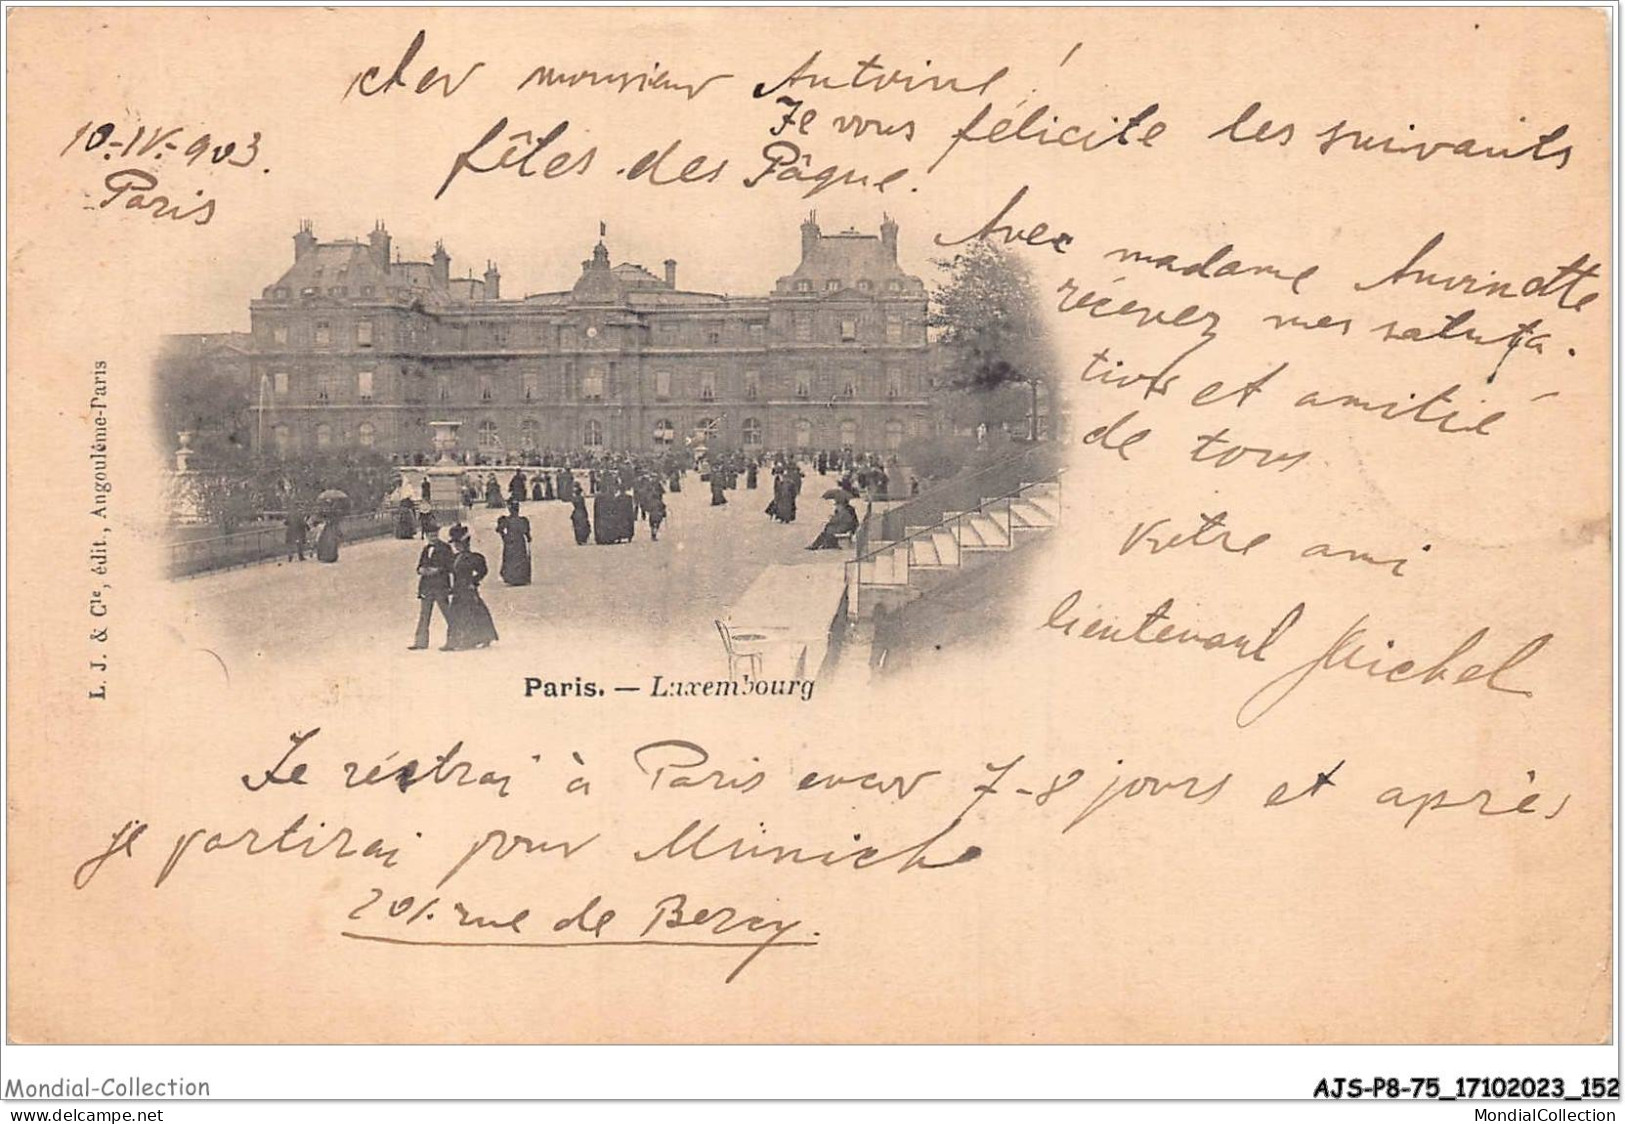 cher monsieur Antoine!
10.-IV.-903.
Paris
Je vous félicite les suivants
fêtes des Pâque.
Avec madame
récevez mes saluta-
tions et amitié
de tous
Votre ami
lieutenant Michel
L. J. & Cie, édit., Angoulême-Paris
Paris. — Luxembourg
Je réstrai à Paris encor 7-8 jours et après
je partirai pour Müniche
201. rue de Bercy.
Mondial-Collection
AJS-P8-75_17102023_152
www.delcampe.net
MondialCollection